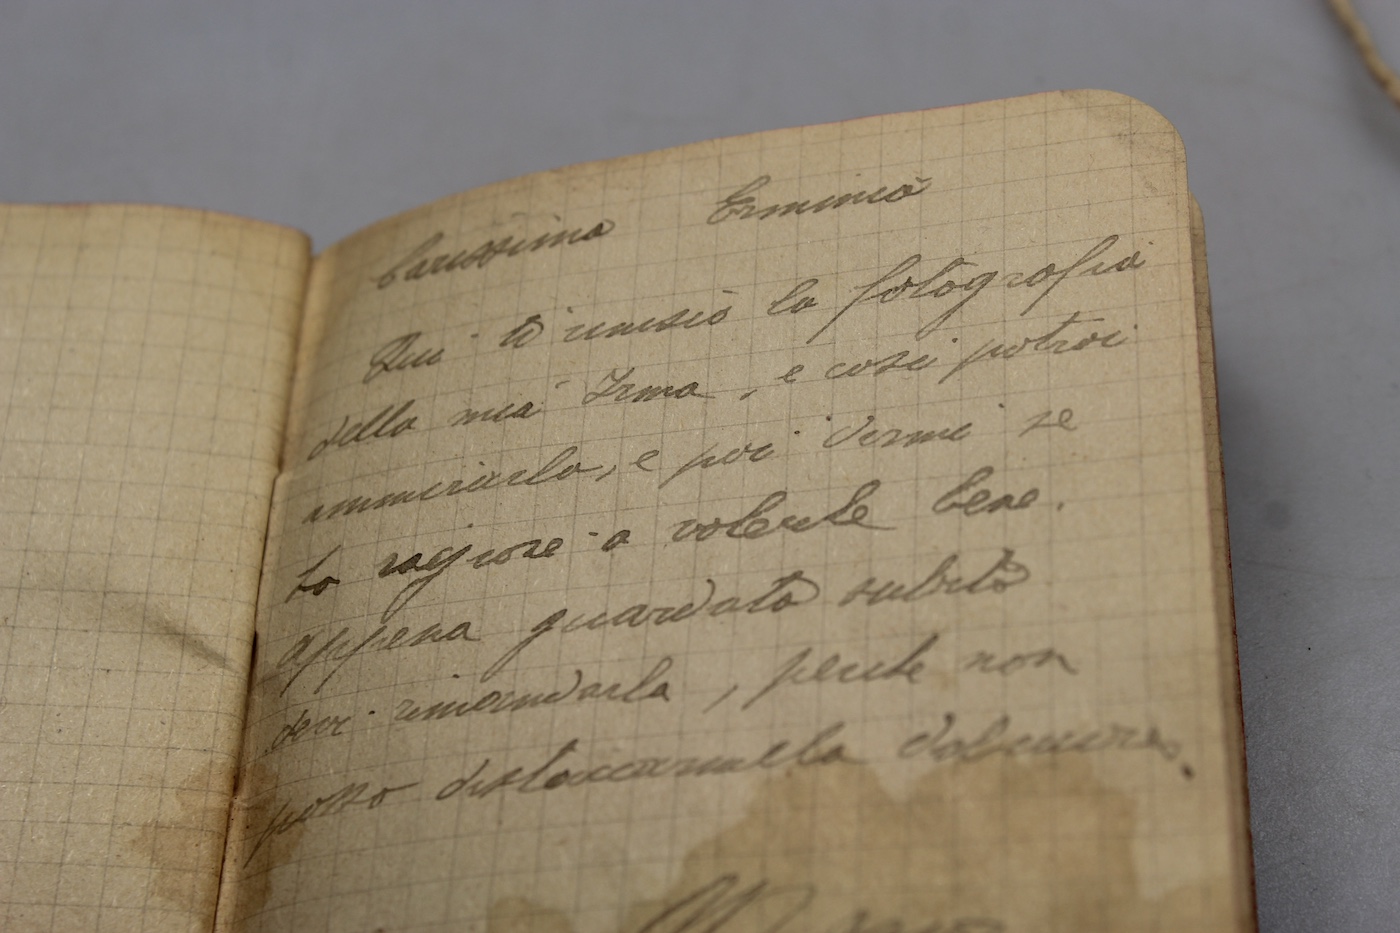 Carissima Erminia
Qui ti unisco la fotografia
della mia Irma, e così potrai
ammirarla, e poi dirmi se
ho ragione a volerle bene.
appena guardata subito
devi rimandarla, perché non
posso distaccarmella dal cuore.